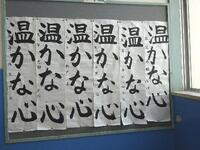 温かな心
温かな心
温かな心
温かな心
温かな心
温かな心